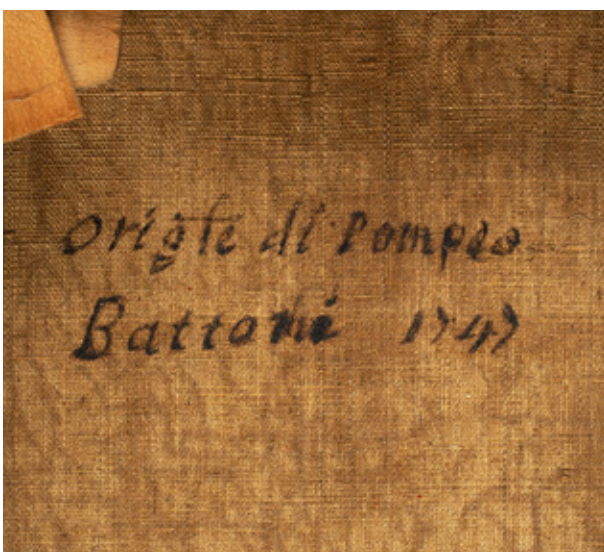 Origle di Pompeo
Battoni 1747